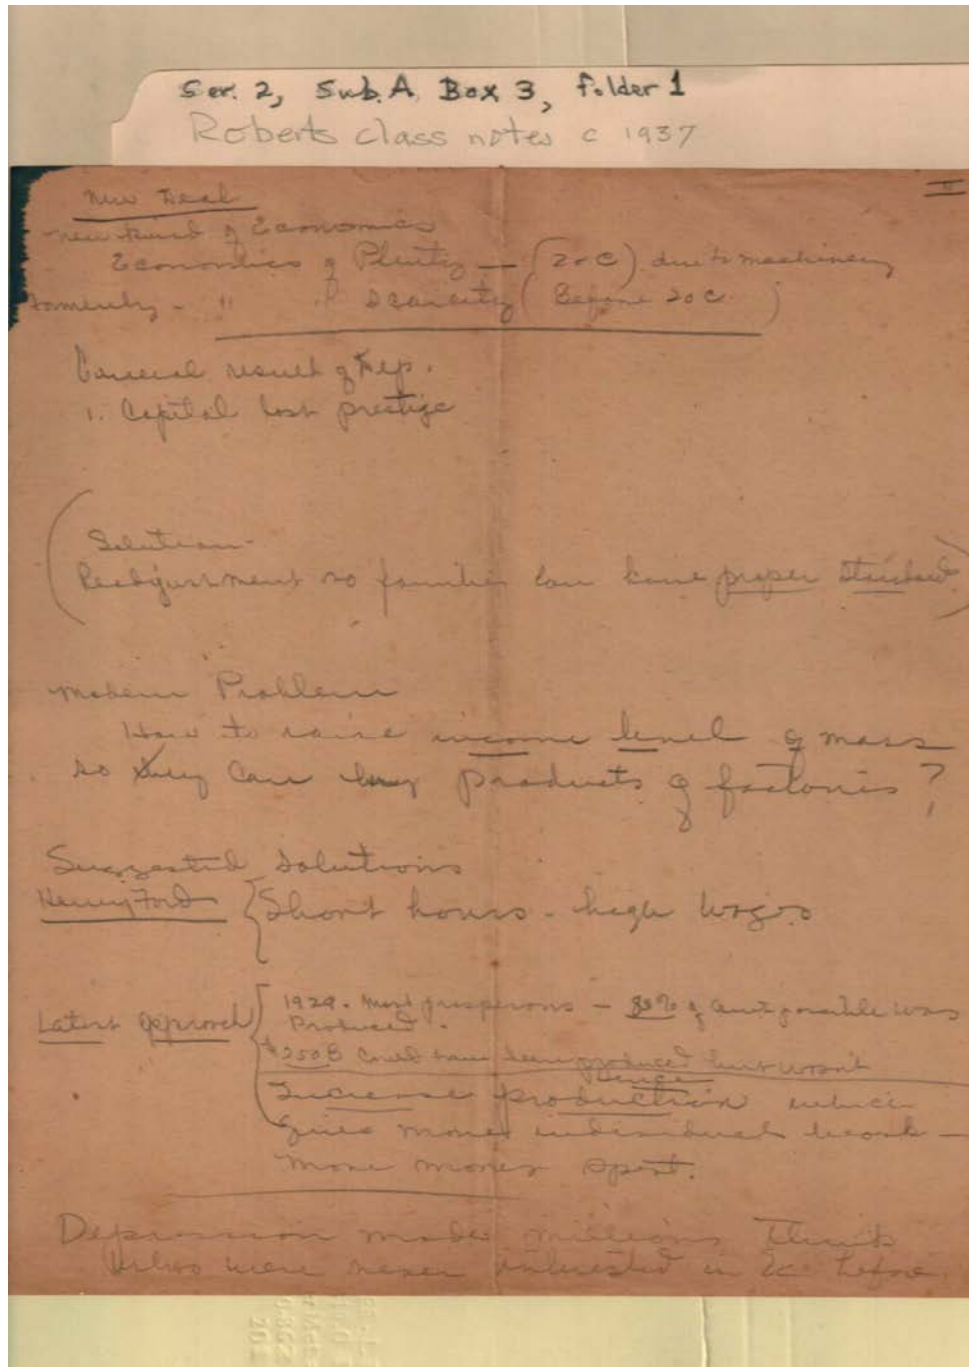 Ser. 2, Sub. A Box 3, folder 1
Roberts class notes c 1937
II
New Deal
New kind of Economics
Economics of Plenty — (20 C) due to machinery
Formerly - " of Scarcity (Before 20 C.)
General result of Dep.
1. Capital lost prestige
(Solution -
Readjustment so families can have proper standard)
Modern Problem
How to raise income level of mass
so they can buy products of factories?
Suggested solutions
Henry Ford { Short hours - high wages
Latest approach { 1929 - Most prosperous - 80% of amt possible was
Produced.
$250B could have been produced but wasn't
Hence
Increase production which
gives more individuals work -
more money spent.
Depression made millions think
Who were never interested in Ec before.